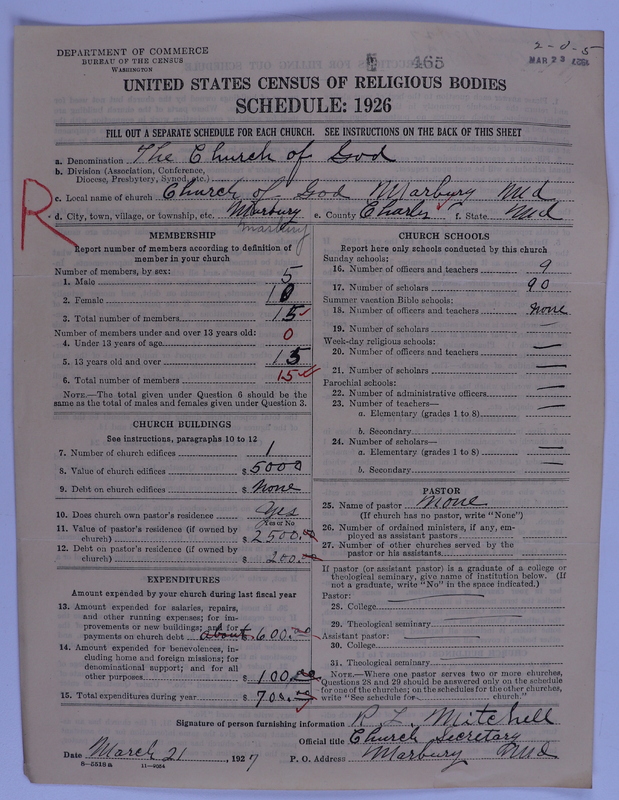 DEPARTMENT OF COMMERCE
BUREAU OF THE CENSUS
WASHINGTON
465
2-0-5
MAR 23
UNITED STATES CENSUS OF RELIGIOUS BODIES
SCHEDULE: 1926
FILL OUT A SEPARATE SCHEDULE FOR EACH CHURCH. SEE INSTRUCTIONS ON THE BACK OF THIS SHEET
R
a. Denomination The Church of God
b. Division (Association, Conference, Diocese, Presbytery, Synod, etc.)
c. Local name of church Church of God Marbury Md
d. City, town, village, or township, etc. Marbury e. County Charles f. State Md
Marbury
MEMBERSHIP
Report number of members according to definition of member in your church
Number of members, by sex:
1. Male 5
2. Female 10
3. Total number of members 15
Number of members under and over 13 years old:
4. Under 13 years of age 0
5. 13 years old and over 15
6. Total number of members 15
NOTE.—The total given under Question 6 should be the same as the total of males and females given under Question 3.
CHURCH BUILDINGS
See instructions, paragraphs 10 to 12
7. Number of church edifices 1
8. Value of church edifices $ 5000
9. Debt on church edifices $ None
10. Does church own pastor's residence Yes
Yes or No
11. Value of pastor's residence (if owned by church) $ 2500.00
12. Debt on pastor's residence (if owned by church) $ 200.00
EXPENDITURES
Amount expended by your church during last fiscal year
13. Amount expended for salaries, repairs, and other running expenses; for improvements or new buildings; and for payments on church debt about 600.00
14. Amount expended for benevolences, including home and foreign missions; for denominational support; and for all other purposes $ 100.00
15. Total expenditures during year $ 700.00
CHURCH SCHOOLS
Report here only schools conducted by this church
Sunday schools:
16. Number of officers and teachers 9
17. Number of scholars 90
Summer vacation Bible schools:
18. Number of officers and teachers none
19. Number of scholars —
Week-day religious schools:
20. Number of officers and teachers —
21. Number of scholars —
Parochial schools:
22. Number of administrative officers —
23. Number of teachers—
a. Elementary (grades 1 to 8) —
b. Secondary
24. Number of scholars—
a. Elementary (grades 1 to 8) —
b. Secondary —
PASTOR
25. Name of pastor None
(If church has no pastor, write "None")
26. Number of ordained ministers, if any, employed as assistant pastors
27. Number of other churches served by the pastor or his assistants
If pastor (or assistant pastor) is a graduate of a college or theological seminary, give name of institution below. (If not a graduate, write "No" in the space indicated.)
Pastor:
28. College —
29. Theological seminary —
Assistant pastor:
30. College —
31. Theological seminary —
NOTE.—Where one pastor serves two or more churches, Questions 28 and 29 should be answered only on the schedule for one of the churches; on the schedules for the other churches, write "See schedule for church."
Signature of person furnishing information R L Mitchell
Official title Church Secretary
Date March 21, 1927 P. O. Address Marbury Md
8—5518a 11—9034